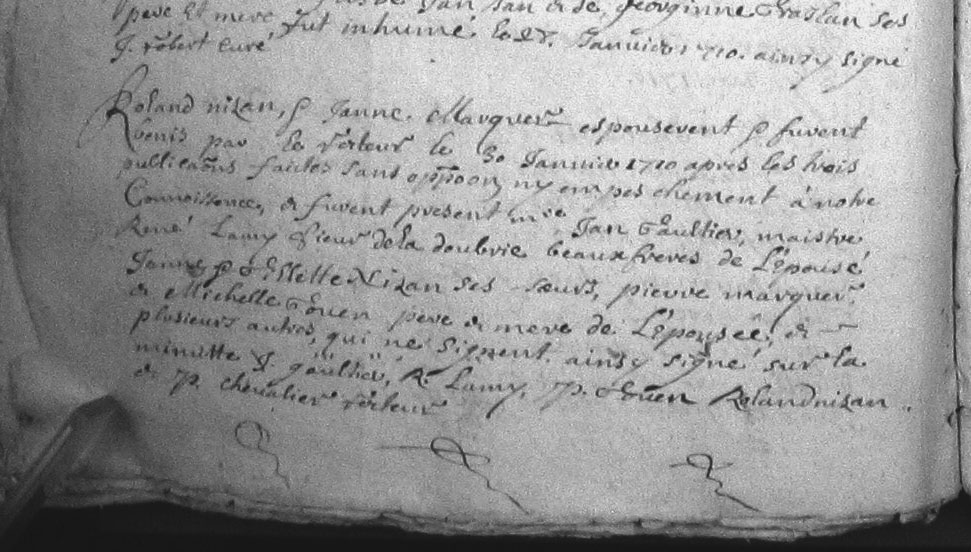 pere et mere fut inhumé le 27. Janvier 1710. ainsy signé
J. robert Curé
Roland nizan, & Janne Marquer espouserent & furent
benis par le recteur le 30 Janvier 1710 apres les trois
publicaõns faites sans oppoõn ny empeschement à notre
Connoissence, & furent present mre Jan Gaultier, maistre
René Lamy Sieur de la doubrie beaux freres de L'épousé
Janne & Ollette Nizan ses sœurs, pierre marquer
& Michelle Goüen pere & mere de L'épousée, &
plusieurs autres, qui ne signent ainsy signé sur la
minutte J. gaültier, R. Lamy, p. Goüen Rolandnizan
& p. chevalier recteur